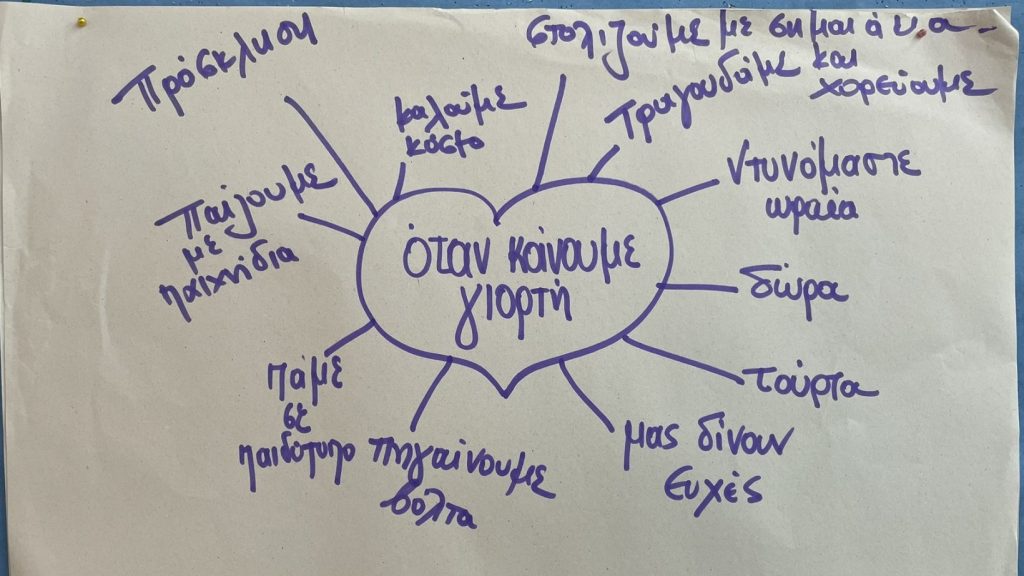 Πρόσκληση
καλούμε
κόσμο
στολίζούμε με σημαιάκια
Τραγουδάμε και
χορεύουμε
Ντυνόμαστε
ωραία
δώρα
τούρτα
μας δίνουν
ευχές
πηγαίνουμε
βόλτα
πάμε
σε
παιδότοπο
Παίζουμε
με
παιχνίδια
όταν κάνουμε
γιορτή